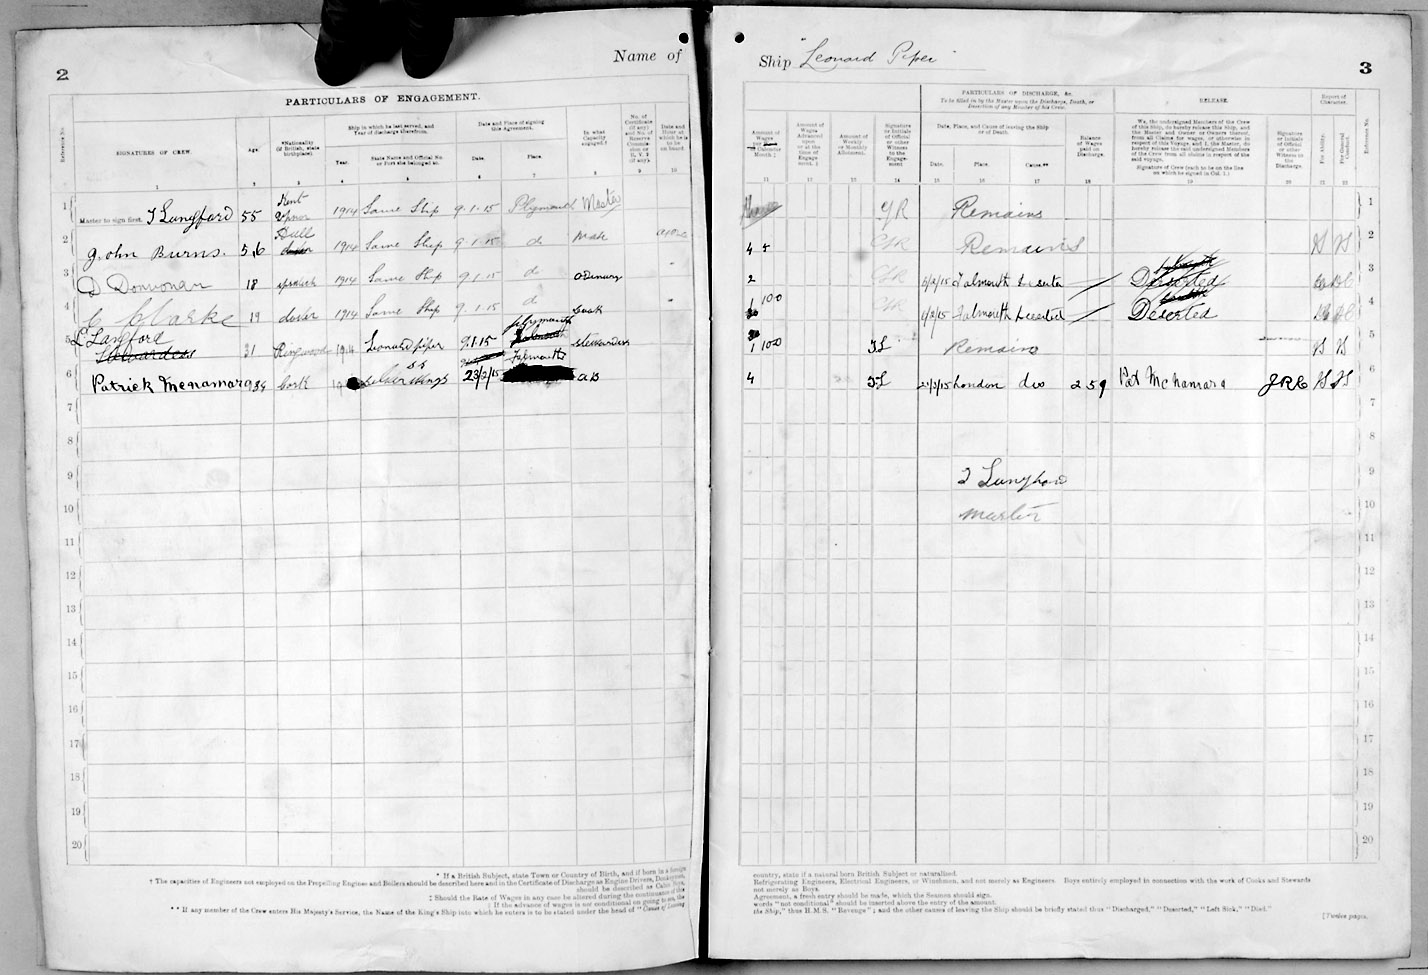 2
Name of
PARTICULARS OF ENGAGEMENT.
Reference No.
SIGNATURES OF CREW.
Age.
*Nationality (if British, state birthplace).
Ship in which he last served, and Year of discharge therefrom.
Year.
State Name and Official No. or Port she belonged to.
Date and Place of signing this Agreement.
Date.
Place.
In what Capacity engaged.†
No. of Certificate (if any) and No. of Reserve Commission or R.V.2 (if any).
Date and Hour at which he is to be on board.
1 2 3 4 5 6 7 8 9 10
1 Master to sign first. T Langford 55 Kent Upnor 1914 Same Ship 9.1.15 Plymouth Master
2 John Burns. 56 Hull 1914 Same Ship 9.1.15 do Mate at once
3 D Donvonan 18 1914 Same Ship 9.1.15 do Ordinary "
4 C Clarke 19 dover 1914 Same Ship 9.1.15 do Cook "
5 L Langford Stewardess 31 Ringwood 1914 Leonard piper 9.1.15 plymouth Falmouth stewardess
6 Patrick Mcnamara 39 Cork SS Silver Wings 23/2/15 Falmouth AB
7
8
9
10
11
12
13
14
15
16
17
18
19
20
* If a British Subject, state Town or Country of Birth, and if born in a foreign
† The capacities of Engineers not employed on the Propelling Engines and Boilers should be described here and in the Certificate of Discharge as Engine Drivers, Donkeymen,
should be described as Cabin Boys,
‡ Should the Rate of Wages in any case be altered during the continuance of this
‡ If the advance of wages is not conditional on going to sea, the
** If any member of the Crew enters His Majesty's Service, the Name of the King's Ship into which he enters is to be stated under the head of "Cause of Leaving
Ship "Leonard Piper"
3
PARTICULARS OF DISCHARGE, &c.
To be filled in by the Master upon the Discharge, Death, or Desertion of any Member of his Crew.
RELEASE.
Report of Character.
Amount of Wages per Calendar Month.‡
Amount of Wages Advanced upon or at the time of Engagement.‡
Amount of Weekly or Monthly Allotment.
Signature or Initials of Official or other Witness to the Engagement
Date, Place, and Cause of leaving the Ship or of Death.
Date.
Place.
Cause.**
Balance of Wages paid on Discharge.
We, the undersigned Members of the Crew of this Ship, do hereby release this Ship, and the Master and Owner or Owners thereof, from all Claims for wages, or otherwise in respect of this Voyage, and I, the Master, do hereby release the said undersigned Members of the Crew from all claims in respect of the said voyage.
Signature of Crew (each to be on the line on which he signed in Col. 1.)
Signature or Initials of Official or other Witness to the Discharge.
For Ability.
For General Conduct.
Reference No.
11 12 13 14 15 16 17 18 19 20 21 22
GR Remains 1
4 5 GR Remains 2
2 GR Falmouth Deserted 3
GR Falmouth Deserted Deserted 4
1 10 0 TL Remains 5
4 TL London dis 2 5 9 Pat McNamara JRC 6
7
8
T Langford 9
master 10
11
12
13
14
15
16
17
18
19
20
country, state if a natural born British Subject or naturalised.
Refrigerating Engineers, Electrical Engineers, or Winchmen, and not merely as Engineers. Boys entirely employed in connection with the work of Cooks and Stewards
not merely as Boys.
Agreement, a fresh entry should be made, which the Seaman should sign.
words "not conditional" should be inserted above the entry of the amount.
the Ship," thus H.M.S. "Revenge"; and the other causes of leaving the Ship should be briefly stated thus "Discharged," "Deserted," "Left Sick," "Died."
[Twelve pages.